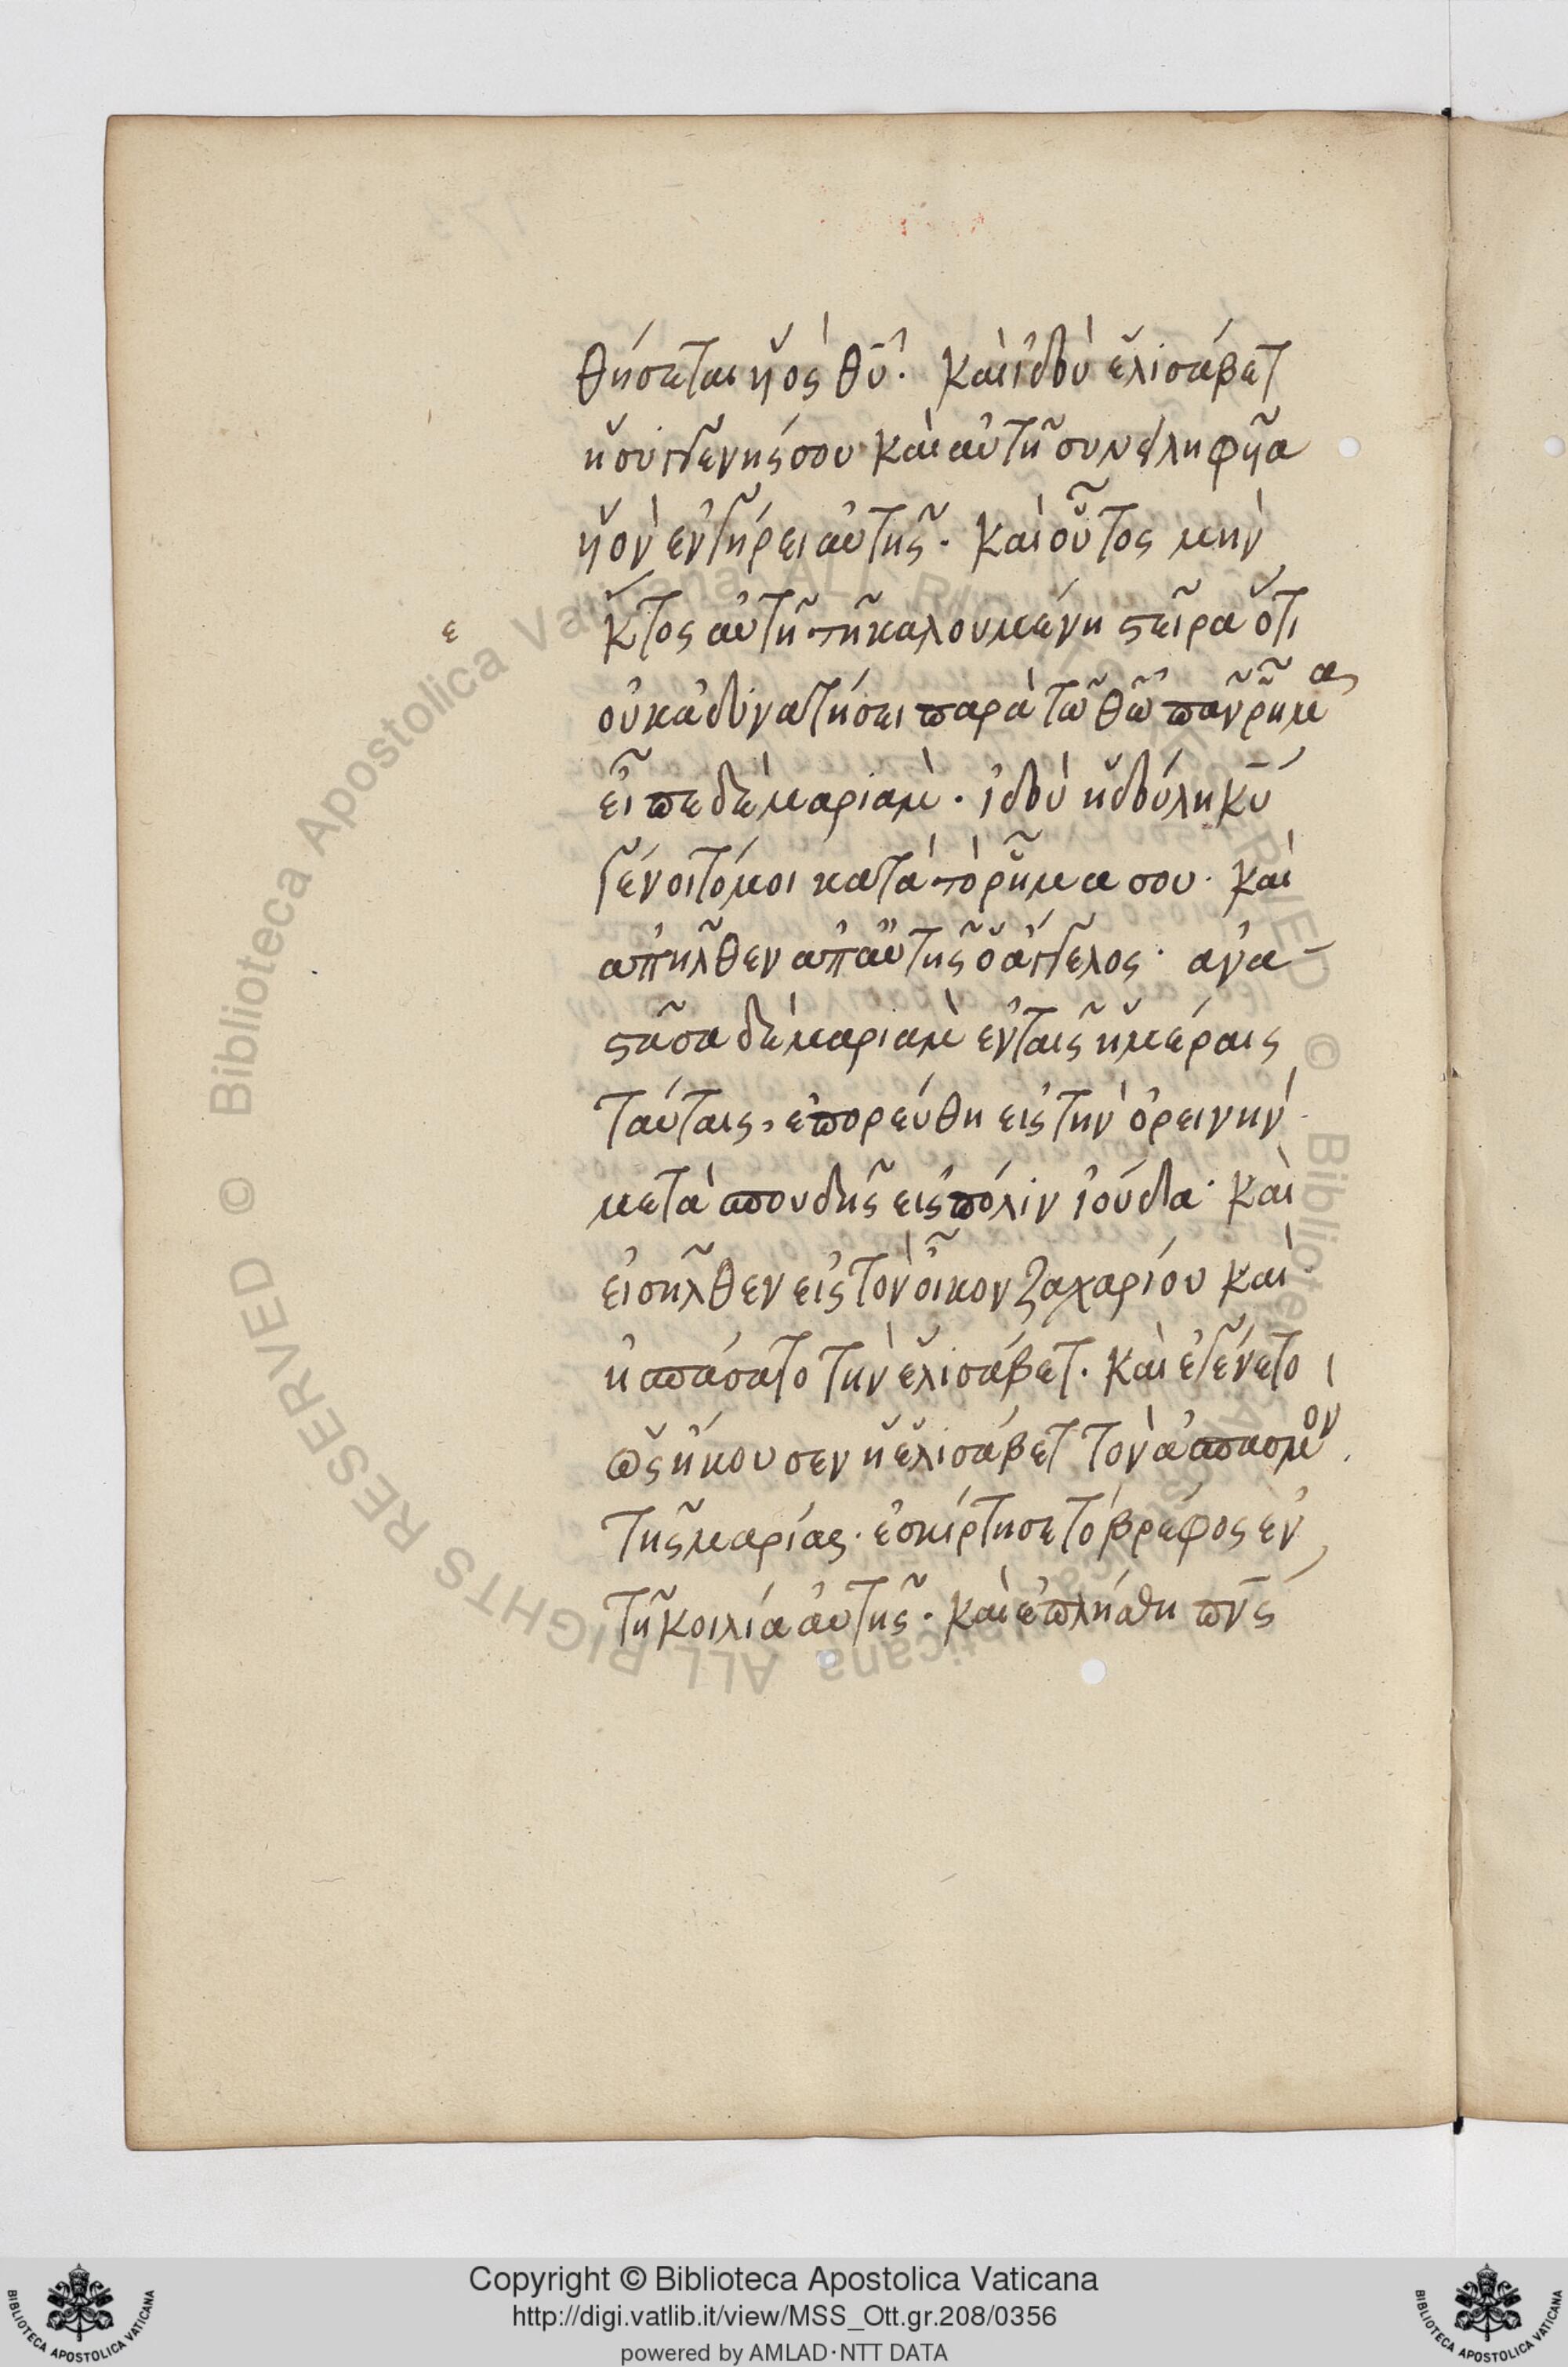 θήσεται ὑὸς θῦ· καὶ ἰδοὺ ἐλισάβετ
ἡ συγγενής σου καὶ αὐτῆ συνειληφῦα
ὑὸν ἐν γήρει αὐτῆς· καὶ οὗτος μὴν
ε
ἕκτος αὐτῆ τῆ καλουμένη στεῖρα ὅτι
οὐκ ἀδυνατήσει παρὰ τῶ θῶ πᾶν ῥῆμα
εἶπε δὲ μαριὰμ· ἰδοὺ ἡ δούλη κῦ
γένοιτό μοι κατὰ τὸ ῥῆμα σου· καὶ
ἀπῆλθεν ἀπ αὐτῆς ὁ ἄγγελος· ἀνα-
στᾶσα δὲ μαριὰμ ἐν ταῖς ἡμέραις
ταύταις, ἐπορεύθη εἰς τὴν ὀρεινὴν
μετὰ σπουδῆς εἰς πόλιν ἰούδα· καὶ
εἰσῆλθεν εἰς τὸν οἶκον ζαχαρίου καὶ
ἠσπάσατο τὴν ἐλισάβετ· καὶ ἐγένετο
ὡς ἤκουσεν ἡ ἐλισάβετ τὸν ἀσπασμὸν
τῆς μαρίας· ἐσκίρτησε τὸ βρέφος ἐν
τῆ κοιλία αὐτῆς· καὶ ἐπλήσθη πνς
Copyright © Biblioteca Apostolica Vaticana
http://digi.vatlib.it/view/MSS_Ott.gr.208/0356
powered by AMLAD·NTT DATA
BIBLIOTECA APOSTOLICA VATICANA
BIBLIOTECA APOSTOLICA VATICANA
© Biblioteca Apostolica Vaticana ALL RIGHTS RESERVED
© Biblioteca Apostolica Vaticana ALL RIGHTS RESERVED